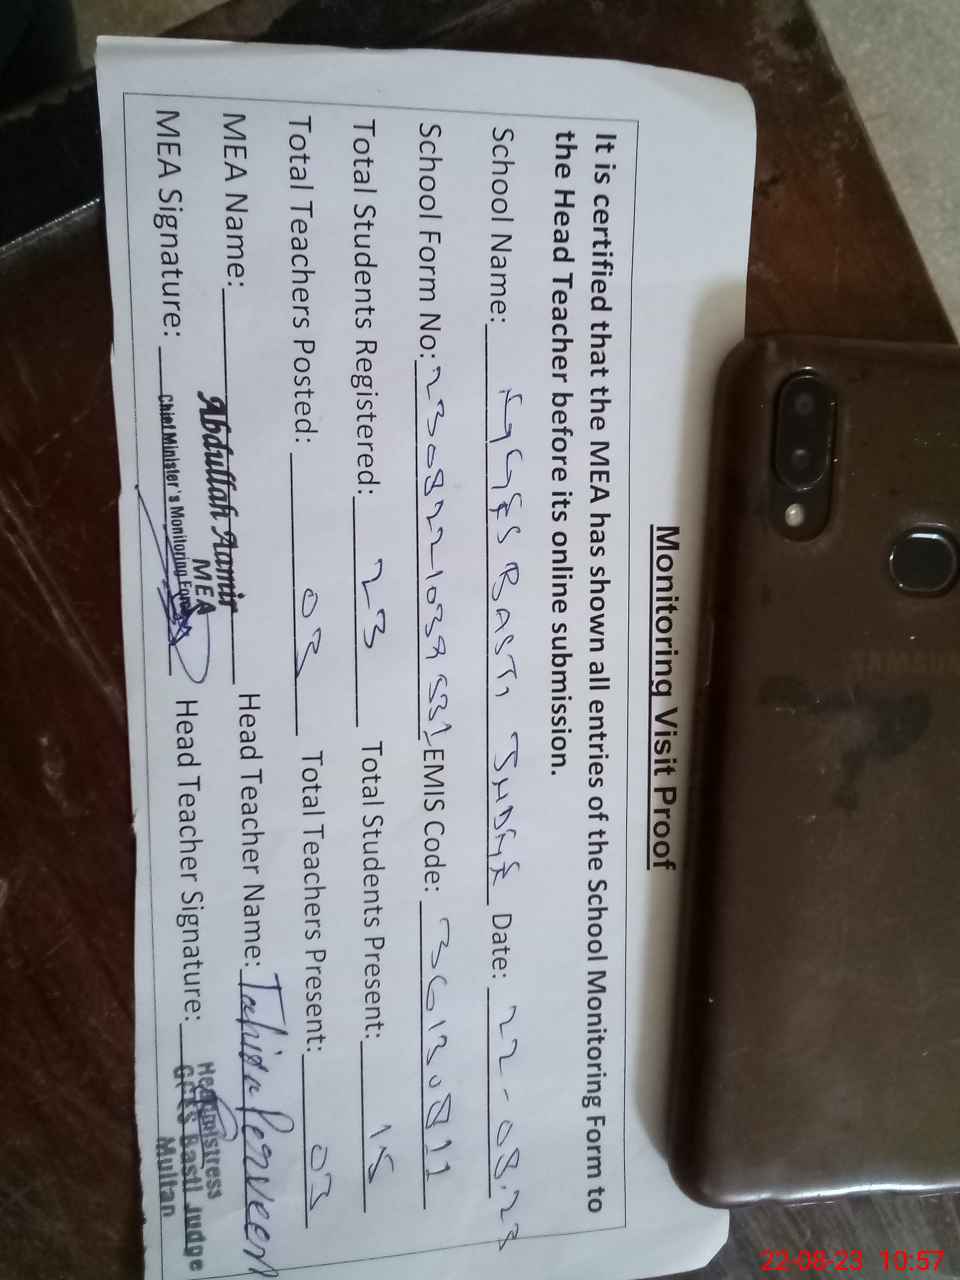 Monitoring Visit Proof
It is certified that the MEA has shown all entries of the School Monitoring Form to
the Head Teacher before its online submission.
School Name: GGES BASTI JUDGE Date: 22-08-23
School Form No: EMIS Code: 36130811
Total Students Registered: 23 Total Students Present: 15
Total Teachers Posted: 03 Total Teachers Present: 03
MEA Name: Abdullah Aamir Head Teacher Name: Tahira Perveen
MEA
MEA Signature: Chief Minister's Monitoring Force Head Teacher Signature:
Headmistress
Basti Judge
Multan
SAMSUNG
22-08-23 10:57